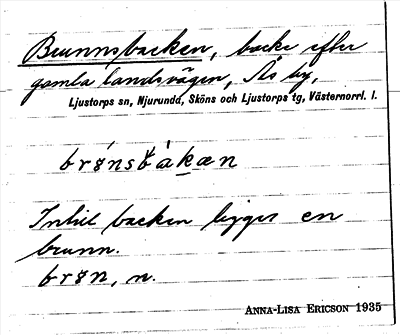 Brunnsbacken, backe efter
gamla landsvägen, Ås by,
Ljustorps sn, Njurunda, Sköns och Ljustorps tg, Västernorrl. l.
brønsbakæn
Intill backen ligger en
brunn.
brøn, n.
ANNA-LISA ERICSON 1935